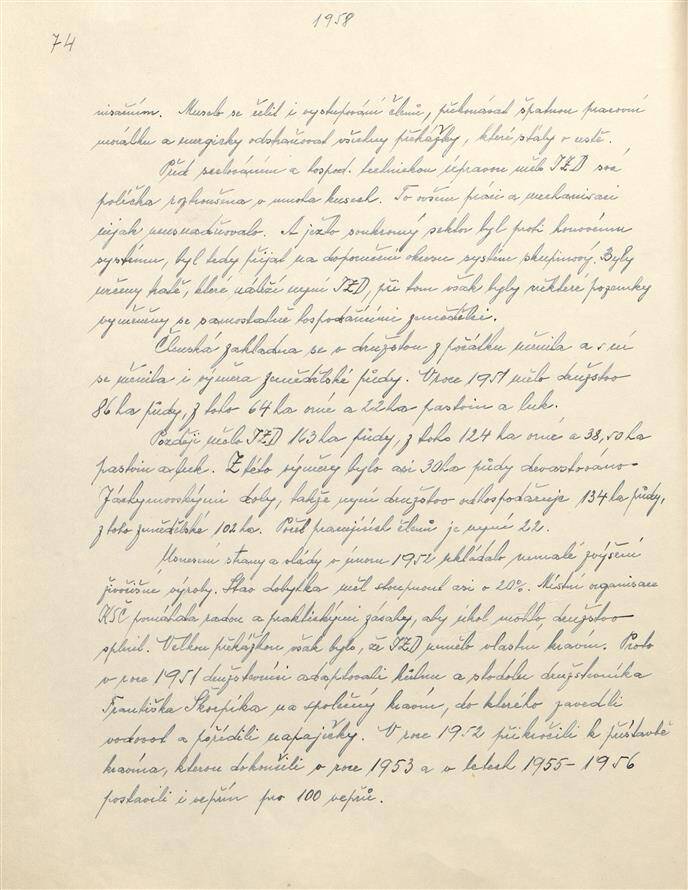 1958
74
nisačním. Muselo se čelit i vystupování členů, překonávat špatnou pracovní
morálku a energicky odstraňovat všechny překážky, které stály v cestě.
Před scelováním a hospod. technickou úpravou mělo JZD svá
políčka rozkouskována v mnoha kusech. To ovšem práci a mechanisaci
nijak neusnadňovalo. A ježto soukromý sektor byl proti honovému
systému, byl tedy přijat na doporučení okresu systém skupinový. Byly
určeny tratě, které náleží nyní JZD, při tom však byly některé pozemky
vyměněny se samostatně hospodařícími zemědělci.
Členská základna se v družstvu z počátku měnila a s ní
se měnila i výměra zemědělské půdy. V roce 1951 mělo družstvo
86 ha půdy, z toho 64 ha orné a 22 ha pastvin a luk.
Později mělo JZD 163 ha půdy, z toho 124 ha orné a 38,50 ha
pastvin a luk. Z této výměry bylo asi 30 ha půdy devastováno
Jáchymovskými doly, takže nyní družstvo obhospodařuje 134 ha půdy,
z toho zemědělské 102 ha. Počet pracujících členů je nyní 22.
Usnesení strany a vlády v únoru 1952 ukládalo nemalé zvýšení
živočišné výroby. Stav dobytka měl stoupnout asi o 20%. Místní organisace
KSČ pomáhala radou a praktickými zásahy, aby úkol mohlo družstvo
splnit. Velkou překážkou však bylo, že JZD nemělo vlastní kravín. Proto
v roce 1951 družstevníci adaptovali kůlnu a stodolu družstevníka
Františka Skřepíka na společný kravín, do kterého zavedli
vodovod a pořídili napáječky. V roce 1952 přikročili k přístavbě
kravína, kterou dokončili v roce 1953 a v letech 1955-1956
postavili i vepřín pro 100 vepřů.